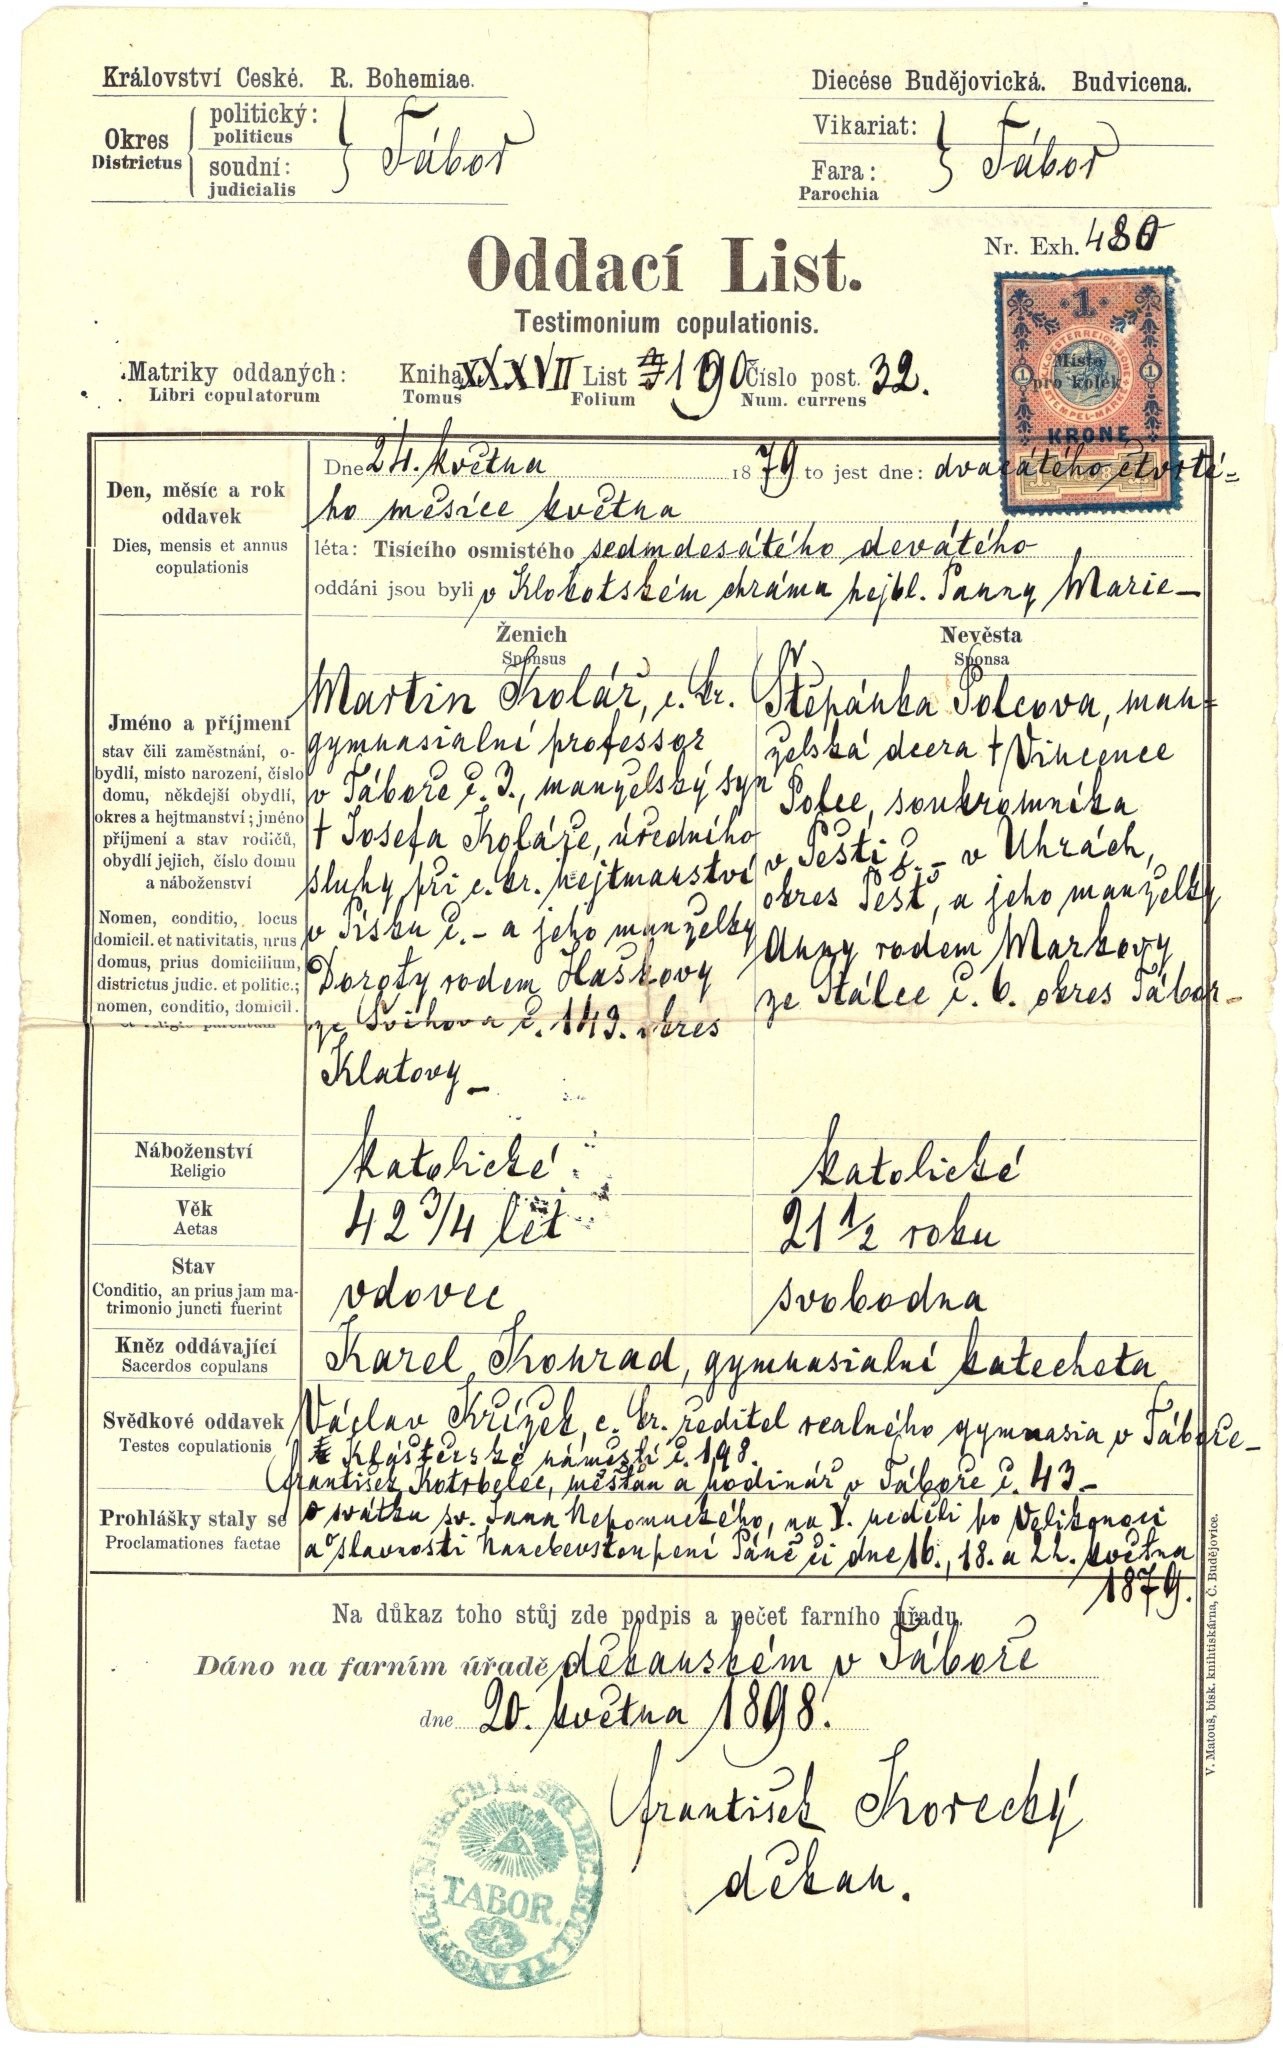 Království České. R. Bohemiae.
Okres
Districtus
politický:
politicus
soudní:
judicialis
Tábor
Diecése Budějovická. Budvicena.
Vikariat:
Fara:
Parochia
Tábor
Nr. Exh. 480
Oddací List.
Testimonium copulationis.
Matriky oddaných:
Libri copulatorum
Kniha XXXVII List 190 Číslo post. 32.
Tomus Folium Num. currens
1
Místo
pro kolek
KRONE
Den, měsíc a rok
oddavek
Dies, mensis et annus
copulationis
Dne 24. května 1879 to jest dne: dvacátého čtvrté=
ho měsíce května
léta: Tisícího osmistého sedmdesátého devátého
oddáni jsou byli v Klokotském chrámu nejbl. Panny Marie_
Ženich
Sponsus
Nevěsta
Sponsa
Jméno a příjmení
stav čili zaměstnání, o-
bydlí, místo narození, číslo
domu, někdejší obydlí,
okres a hejtmanství; jméno
příjmení a stav rodičů,
obydlí jejich, číslo domu
a náboženství
Nomen, conditio, locus
domicil. et nativitatis, nrus
domus, prius domicilium,
districtus judic. et politic.;
nomen, conditio, domicil.
et religio parentum
Martin Kolář, c. kr.
gymnasialní professor
v Táboře č. 3., manželský syn
† Josefa Koláře, úředního
sluhy při c. kr. hejtmanství
v Písku č. – a jeho manželky
Doroty rodem Haškovy
ze Švihova č. 149. okres
Klatovy_
Štěpánka Polcova, man=
želská dcera † Vincence
Polce, soukromníka
v Pešti č. – v Uhrách,
okres Pešť, a jeho manželky
Anny rodem Markovy
ze Stálce č. 6. okres Tábor_
Náboženství
Religio
katolické
katolické
Věk
Aetas
42 3/4 let
21 1/2 roku
Stav
Conditio, an prius jam ma-
trimonio juncti fuerint
vdovec
svobodna
Kněz oddávající
Sacerdos copulans
Karel Konrad, gymnasialní katecheta
Svědkové oddavek
Testes copulationis
Václav Křížek, c. kr. ředitel realného gymnasia v Táboře_
Klášterské náměstí č. 198.
František Kotrbelec, měšťan a hodinář v Táboře č. 43_
Prohlášky staly se
Proclamationes factae
o svátku sv. Jana Nepomuckého, na V. neděli po Velikonoci
a o slavnosti Nanebevstoupení Páně či dne 16., 18. a 22. května
1879.
Na důkaz toho stůj zde podpis a pečeť farního úřadu.
Dáno na farním úřadě děkanském v Táboře
dne 20. května 1898.
František Korecký
děkan.
TABOR
V. Matouš, bisk. knihtiskárna, Č. Budějovice.